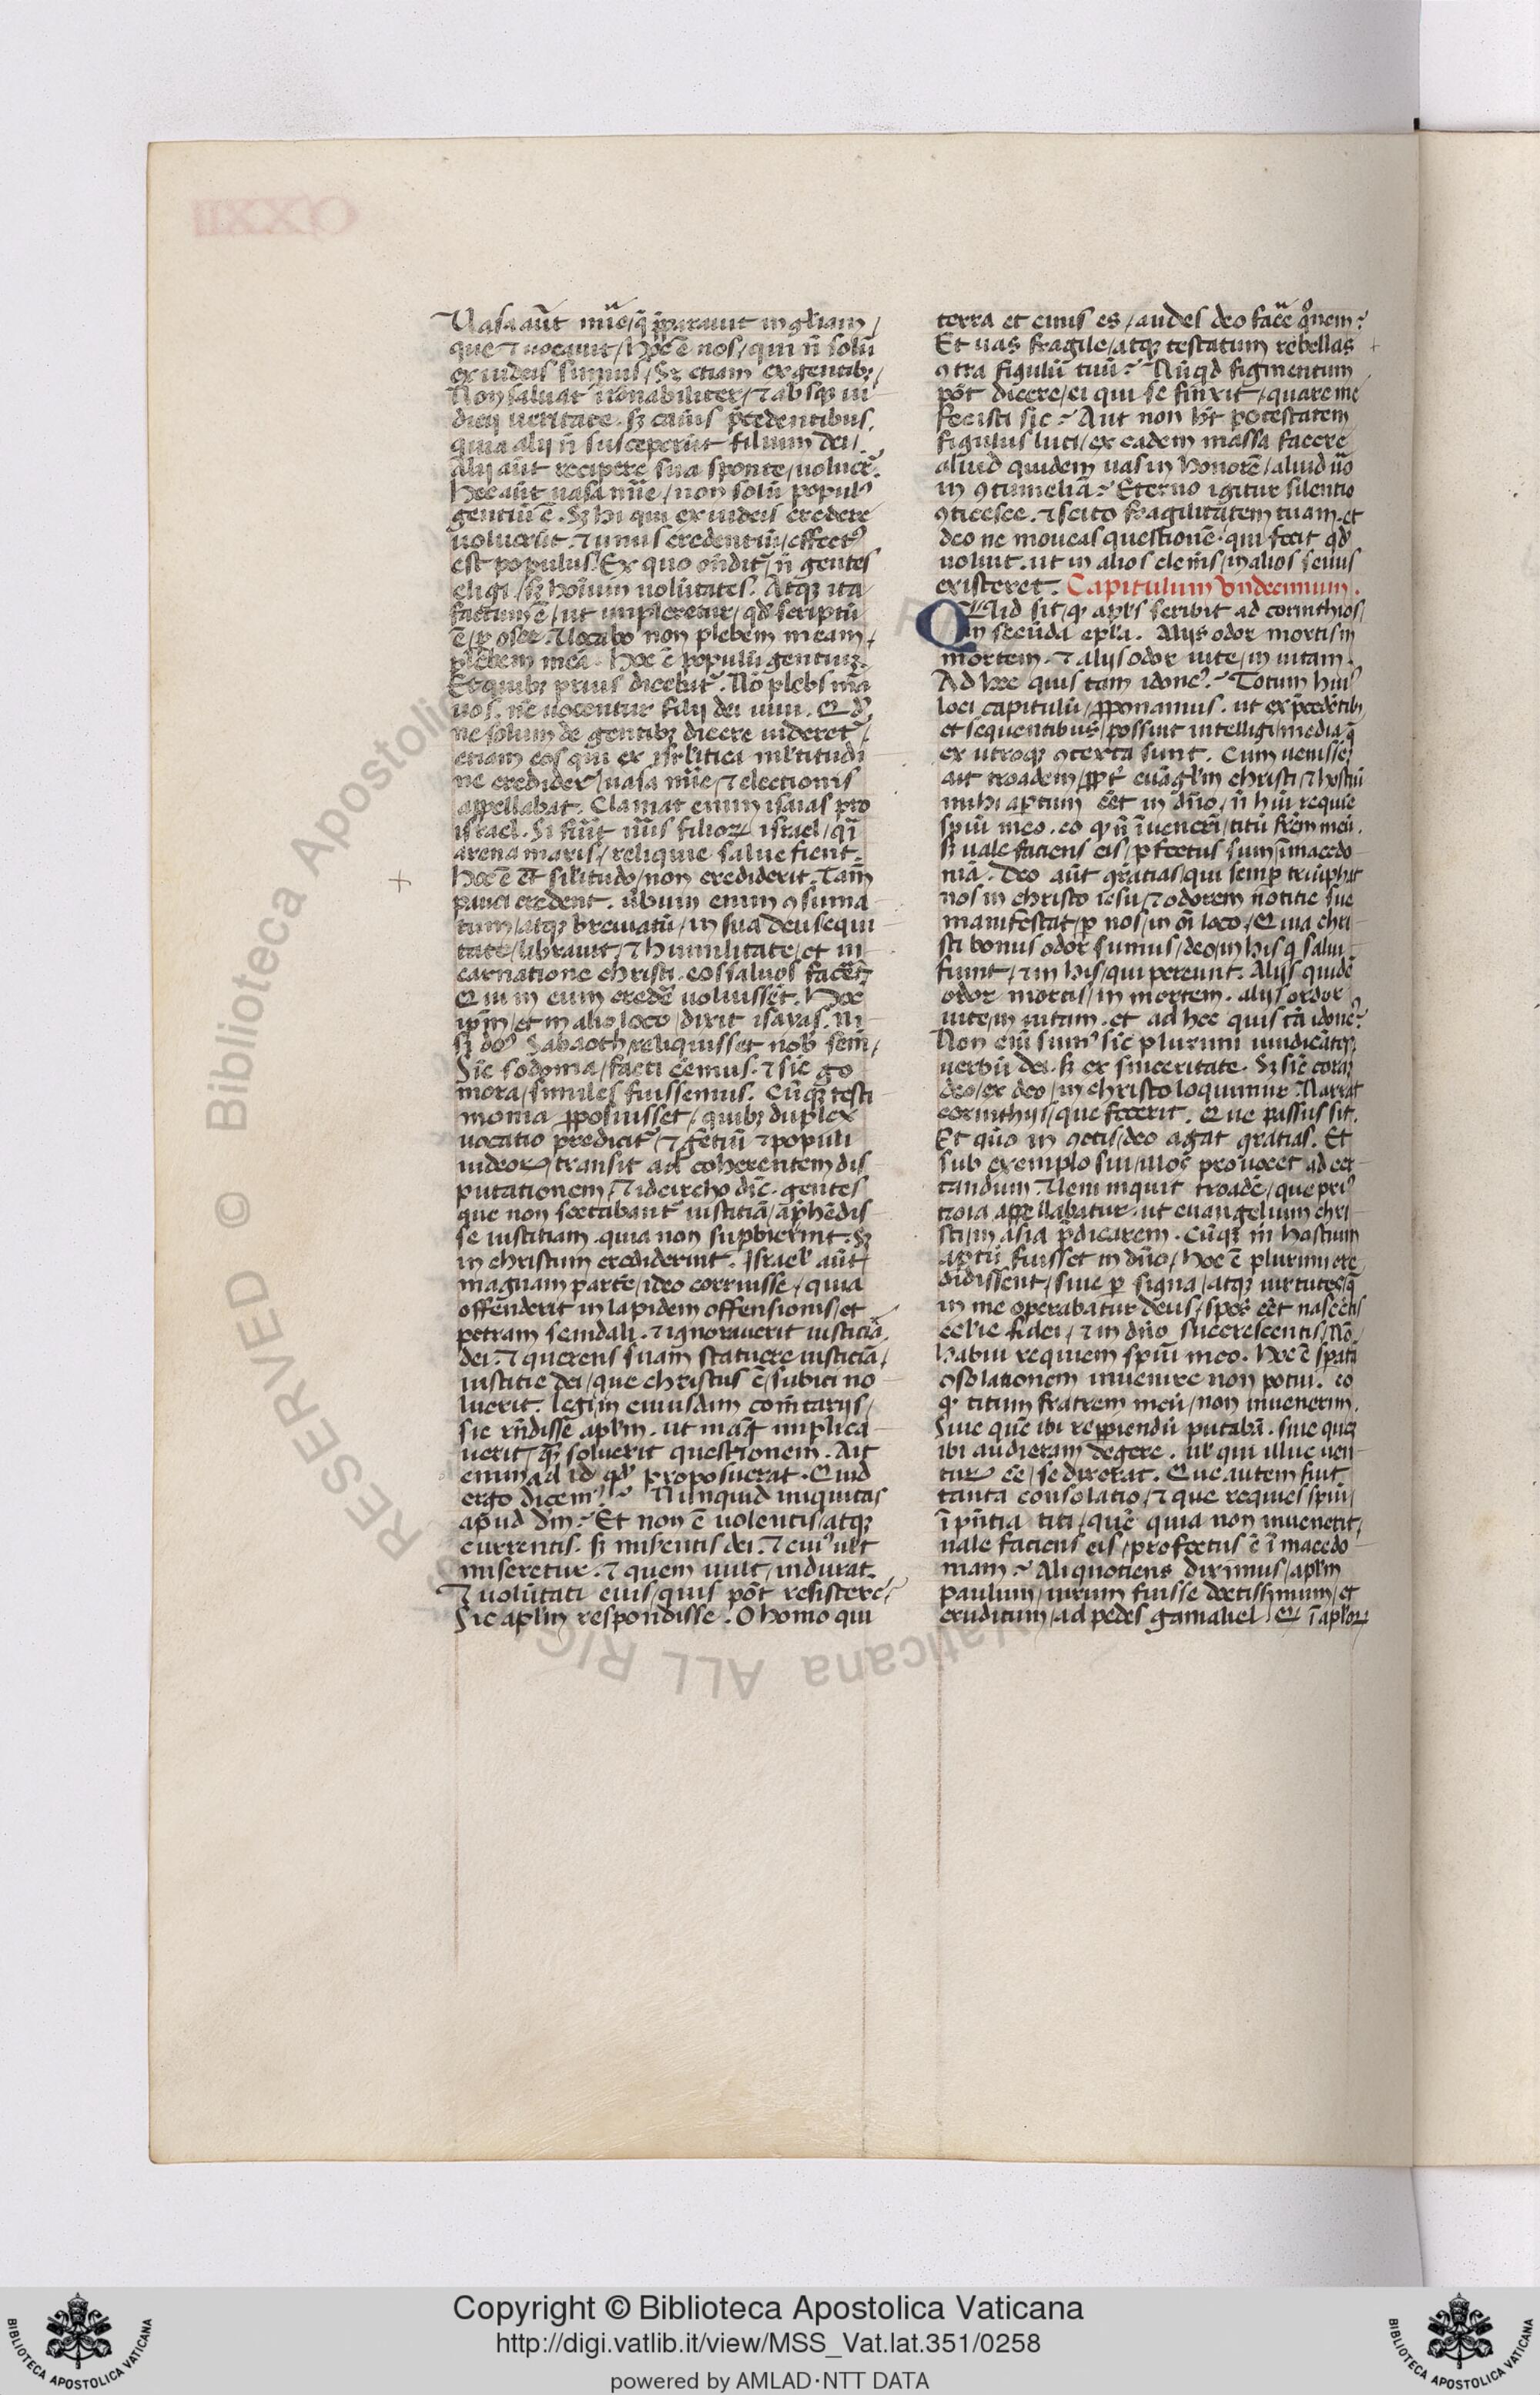 Vasa aūt mīe/q̄ p̄parauit in gl̄iam/
que ⁊ uocauit/ Hoc ē nos/ qui n̄ solū
ex iudeis sumus/ Sꝫ etiam ex gentibꝫ/
Non saluat irr̄onabiliter/ ⁊ absqꝫ iu
dicij ueritate. sꝫ causis p̄cedentibus.
quia alij n̄ susceperūt filium dei/.
Alij aūt recipere sua sponte/ uoluer̄t.
Hec aūt uasa mīe/ non solū populꝰ
gentiū ē. Sꝫ hi qui ex iudeis credere
uoluerūt. ⁊ unus credentiū/ effectꝰ
est populus. Ex quo ōnditr̄/ n̄ gentes
eligi/ sꝫ hoīum uolūtates. Atqꝫ ita
factum ē/ ut impleretur/ qd̓ scriptū
ē/ ꝑ osee. Vocabo non plebem meam/
plebem meā. Hoc ē populū gentium.
Et quibꝫ prius dicebat̄. Nō plebs mēa
uos. nc̄ uocentur filij dei uiui. Qd̓
ne solum de gentibꝫ dicere uideret̄/
etiam eos qui ex isrl̓itica ml̓titudi
ne credider̄t/ uasa mīe/ ⁊ electionis
appellabat. Clamat enim isaias pro
israel. Si fūit nūs filioꝝ israel/ qͥi
arena maris/ reliquie salue fient.
Hoc ē et̄ si ml̓titudo/ non crediderit. Tam̄
pauci credent. ūbum enim ꝯsuma
tum/ atqꝫ breuiatū/ in sua deus equi
tate/ librauit/ ⁊ humilitate/ et in
carnatione christi. eos saluos facēt/
Qui in eum credē uoluissēt. Hoc
ip̄m/ et in alio loco/ dixit isayas. Ni
si dn̄s Sabaoth/ reliquisset nob̓ sem̄/
Sic sodoma/ facti eēmus. ⁊ sic go
mora/ similes fuissemus. Cūqꝫ testi
monia ꝓposuisset/ quibꝫ duplex
uocatio predicit̄/ ⁊ gētiū ⁊ populi
iudeoꝝ/ transit ad coherentem dis
putationem/ ⁊ idcircho dic̄. gentes
que non sectabant̄ iustitiā/ app̄hēdis
se iustitiam. quia non supbierint. Sꝫ
in christum crediderint. Israel̓ aūt
magnam partē/ ideo corruisse/ quia
offenderit in lapidem offensionis/ et
petram scandali. ⁊ ignorauerit iusticiā
dei. ⁊ querens suam statuere iusticiā/
iustitie dei/ que christus ē/ subici no
luerit. Legi in cuiusdam com̄tarijs/
sic rn̄disse ap̄lm. ut mag̓ implica
uerit/ qͣꝫ soluerit questionem. Ait
enim ad id qd̓ proposuerat. Quid
ergo dicemꝰ? Nunquid iniquitas
apud dm̄? Et non ē uolentis/ atqꝫ
currentis. sꝫ miserentis dei. ⁊ cuiꝰ uult
miseretur. ⁊ quem uult/ indurat.
⁊ uolūtati eius/ quis pōt resistere?
Sic ap̄lm respondisse. O homo qui
terra et cinis es/ audes deo facē qͦnem?
Et uas fragile/ atqꝫ testatum rebellas
ꝯtra figulū tuū? Nūqd̓ figmentum
pōt dicere/ ei qui se finxit/ quare me
fecisti sic? Aut non hēt potestatem
figulus luti/ ex eadem massa facere
aliud quidem uas in honorē/ aliud ūo
in ꝯtumeliā? Eterno igitur silentio
ꝯticesce. ⁊ scito fragilitatem tuam. et
deo ne moueas questionē. qui fecit qd̓
uoluit. ut in alios clemēs/ in alios seuus
existeret. Capitulum Vndecimum.
QVid sit/ qͩ apl̓s scribit ad corinthios/
in secūda ep̄la. Alijs odor mortis in
mortem. ⁊ alijs odor uite/ in uitam.
Ad hec quis tam idoneꝰ? Totum huiꝰ
loci capitulū/ ꝓponamus. ut ex p̄cedētibꝫ
et sequentibus/ possint intelligi/ media/ q̄
ex utroqꝫ ꝯtexta sunt. Cum uenissē/
ait troadem/ ꝓpt̄ euāgl̓m christi/ ⁊ hostiū
mihi aꝑtum eēt in dn̄o/ n̄ hui requiē
spiū meo. eo qͩ n̄ īuenerī/ titū frēm meū.
Sꝫ uale faciens eis/ ꝓfectus sum/ in macedo
niā. Deo aūt gratias/ qui semꝑ triūphat
nos in christo iesu/ ⁊ odorem notitie sue
manifestat/ ꝑ nos/ in oī loco/ Quia chri
sti bonus odor sumus/ deo/ in his q̄ salui
fiunt/ ⁊ in his/ qui pereunt. Alijs quidē
odor mortis/ in mortem. alijs ordor
uite/ in uitam. et ad hec quis tā idoneꝰ?
Non enī sumꝰ sic plurimi uēdicātes
uerbū dei. sꝫ ex sinceritate. Sꝫ sic̄ coram
deo/ ex deo/ in christo loquimur. Narrat
corinthijs/ que fecerit. Que passus sit.
Et quō in ꝯctis/ deo agat gratias. Et
sub exemplo sui/ illos prouocet ad cer
tandum. Veni inquit troadē/ que priꝰ
troia appellabatur. ut euangelium chri
sti/ in asia p̄dicarem. Cūqꝫ m̄ hostium
aꝑtū fuisset in dn̄o/ Hoc ē plurimi cre
didissent/ siue ꝑ signa/ atqꝫ uirtutes/ q̄
in me operabatur deus/ spes eēt nascētis
ecl̓ie fidei/ ⁊ in dn̄o succrescentis/ Nō
habui requiem spiū meo. Hoc ē spatā
ꝯsolationem inuenire non potui. eo
qͩ titum fratrem meū/ non inuenerim.
Siue quē ibi repꝑiendū putabā. siue quē
ibi audieram degere. ul̓ qui illuc uen
turū eē/ se dixerat. Que autem fuit
tanta consolatio/ ⁊ que requies spiū/
ī pn̄tia titi/ quē quia non inuenerit/
uale faciens eis/ profectus ē ī macedo
niam? Aliquotiens diximus/ ap̄lm
paulum/ uirum fuisse doctissimum/ et
eruditum/ ad pedes gamaliel/ Qͥ ī apl̓oꝝ
Copyright © Biblioteca Apostolica Vaticana
http://digi.vatlib.it/view/MSS_Vat.lat.351/0258
powered by AMLAD·NTT DATA
BIBLIOTECA APOSTOLICA VATICANA
BIBLIOTECA APOSTOLICA VATICANA